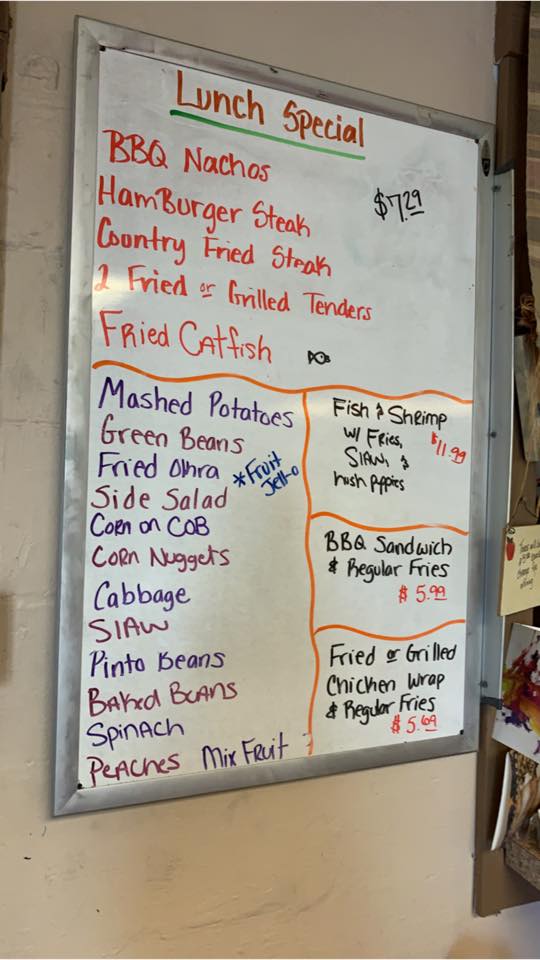 Lunch Special
BBQ Nachos
$7.29
HamBurger Steak
Country Fried Steak
2 Fried or Grilled Tenders
Fried Catfish
Mashed Potatoes
Green Beans
Fried Okra
*Fruit
Jell-o
Side Salad
Corn on COB
Corn Nuggets
Cabbage
SlAW
Pinto Beans
BAked BEANS
SpinAcH
PeACHes Mix Fruit
Fish & SHrimp
w/ Fries,
SlAW, &
Hush puppies
$11.99
BBQ SandwicH
& Regular Fries
$5.99
Fried or Grilled
Chicken Wrap
& Regular Fries
$5.69